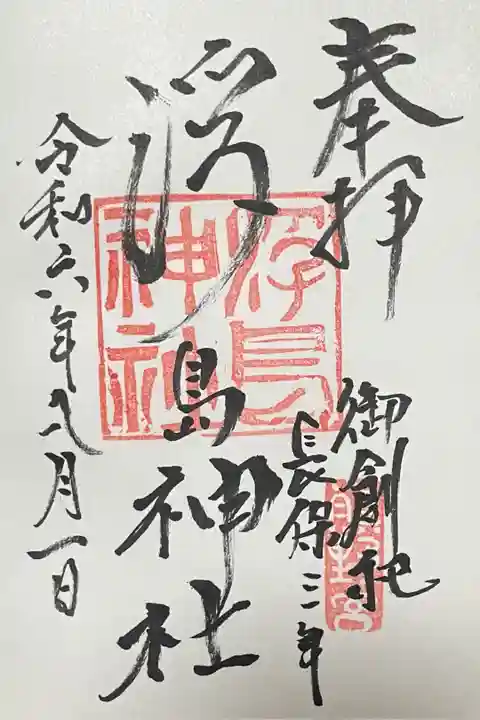 奉拝
御創祀
長保三年
浮島神社
浮島
神社
令和六年八月一日